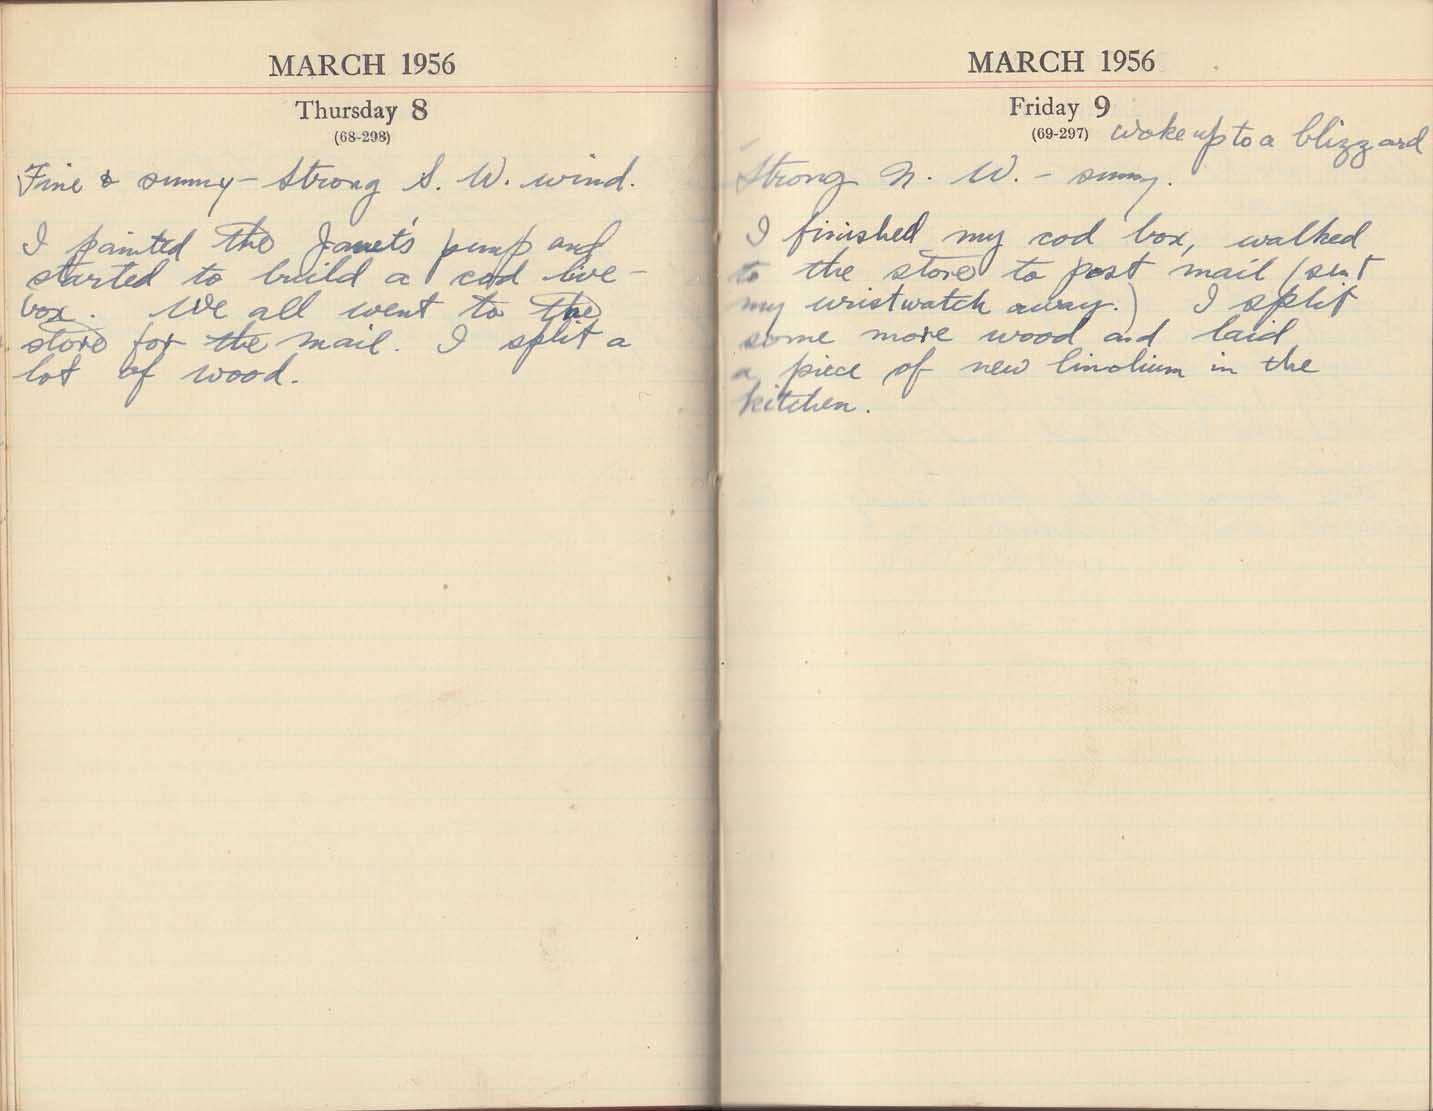 MARCH 1956
Thursday 8
(68-298)
Fine & sunny - Strong S. W. wind.
I painted the Janet's pump and
started to build a cod live-
box. We all went to the
store for the mail. I split a
lot of wood.
MARCH 1956
Friday 9
(69-297) woke up to a blizzard
Strong N. W. - sunny.
I finished my cod box, walked
to the store to post mail (sent
my wristwatch away.) I split
some more wood and laid
a piece of new linolium in the
kitchen.